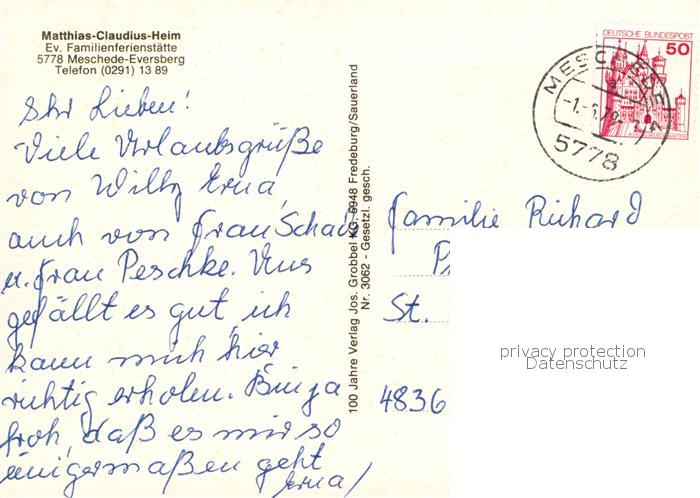 Matthias-Claudius-Heim
Ev. Familienferienstätte
5778 Meschede-Eversberg
Telefon (0291) 13 89
Ihr Lieben!
Viele Urlaubsgrüße
von Willy Erna,
auch von Frau Schaus
u. Frau Peschke. Uns
gefällt es gut ich
kann mich hier
richtig erholen. Bin ja
froh, daß es mir so
einigermaßen geht
Erna
100 Jahre Verlag Jos. Grobbel KG, 5948 Fredeburg/Sauerland
Nr. 3062 - Gesetzl. gesch.
DEUTSCHE BUNDESPOST
50
MESCHEDE
5778
Familie Richard
St.
4836
privacy protection
Datenschutz